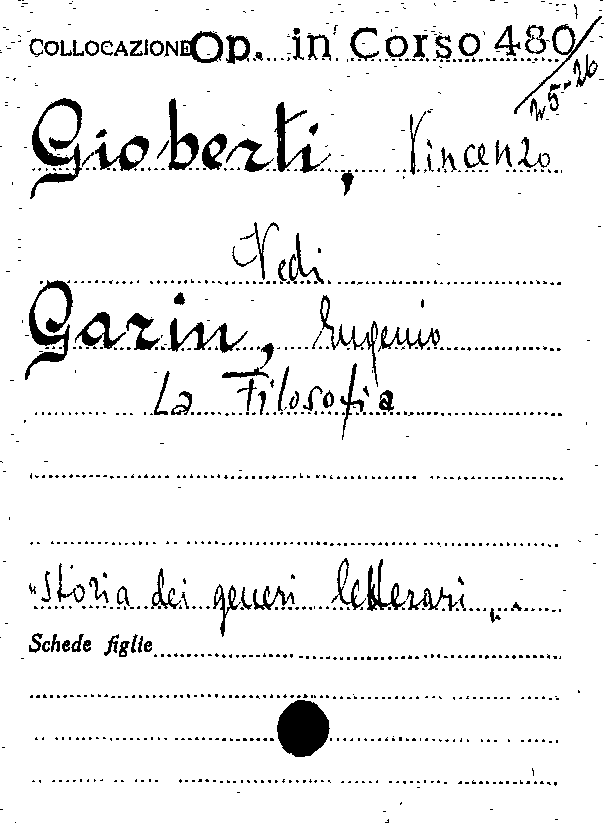 COLLOCAZIONE Op. in Corso 480/
25-26
Gioberti, Vincenzo
Vedi
Garin, Eugenio
La Filosofia
"Storia dei generi letterari"
Schede figlie